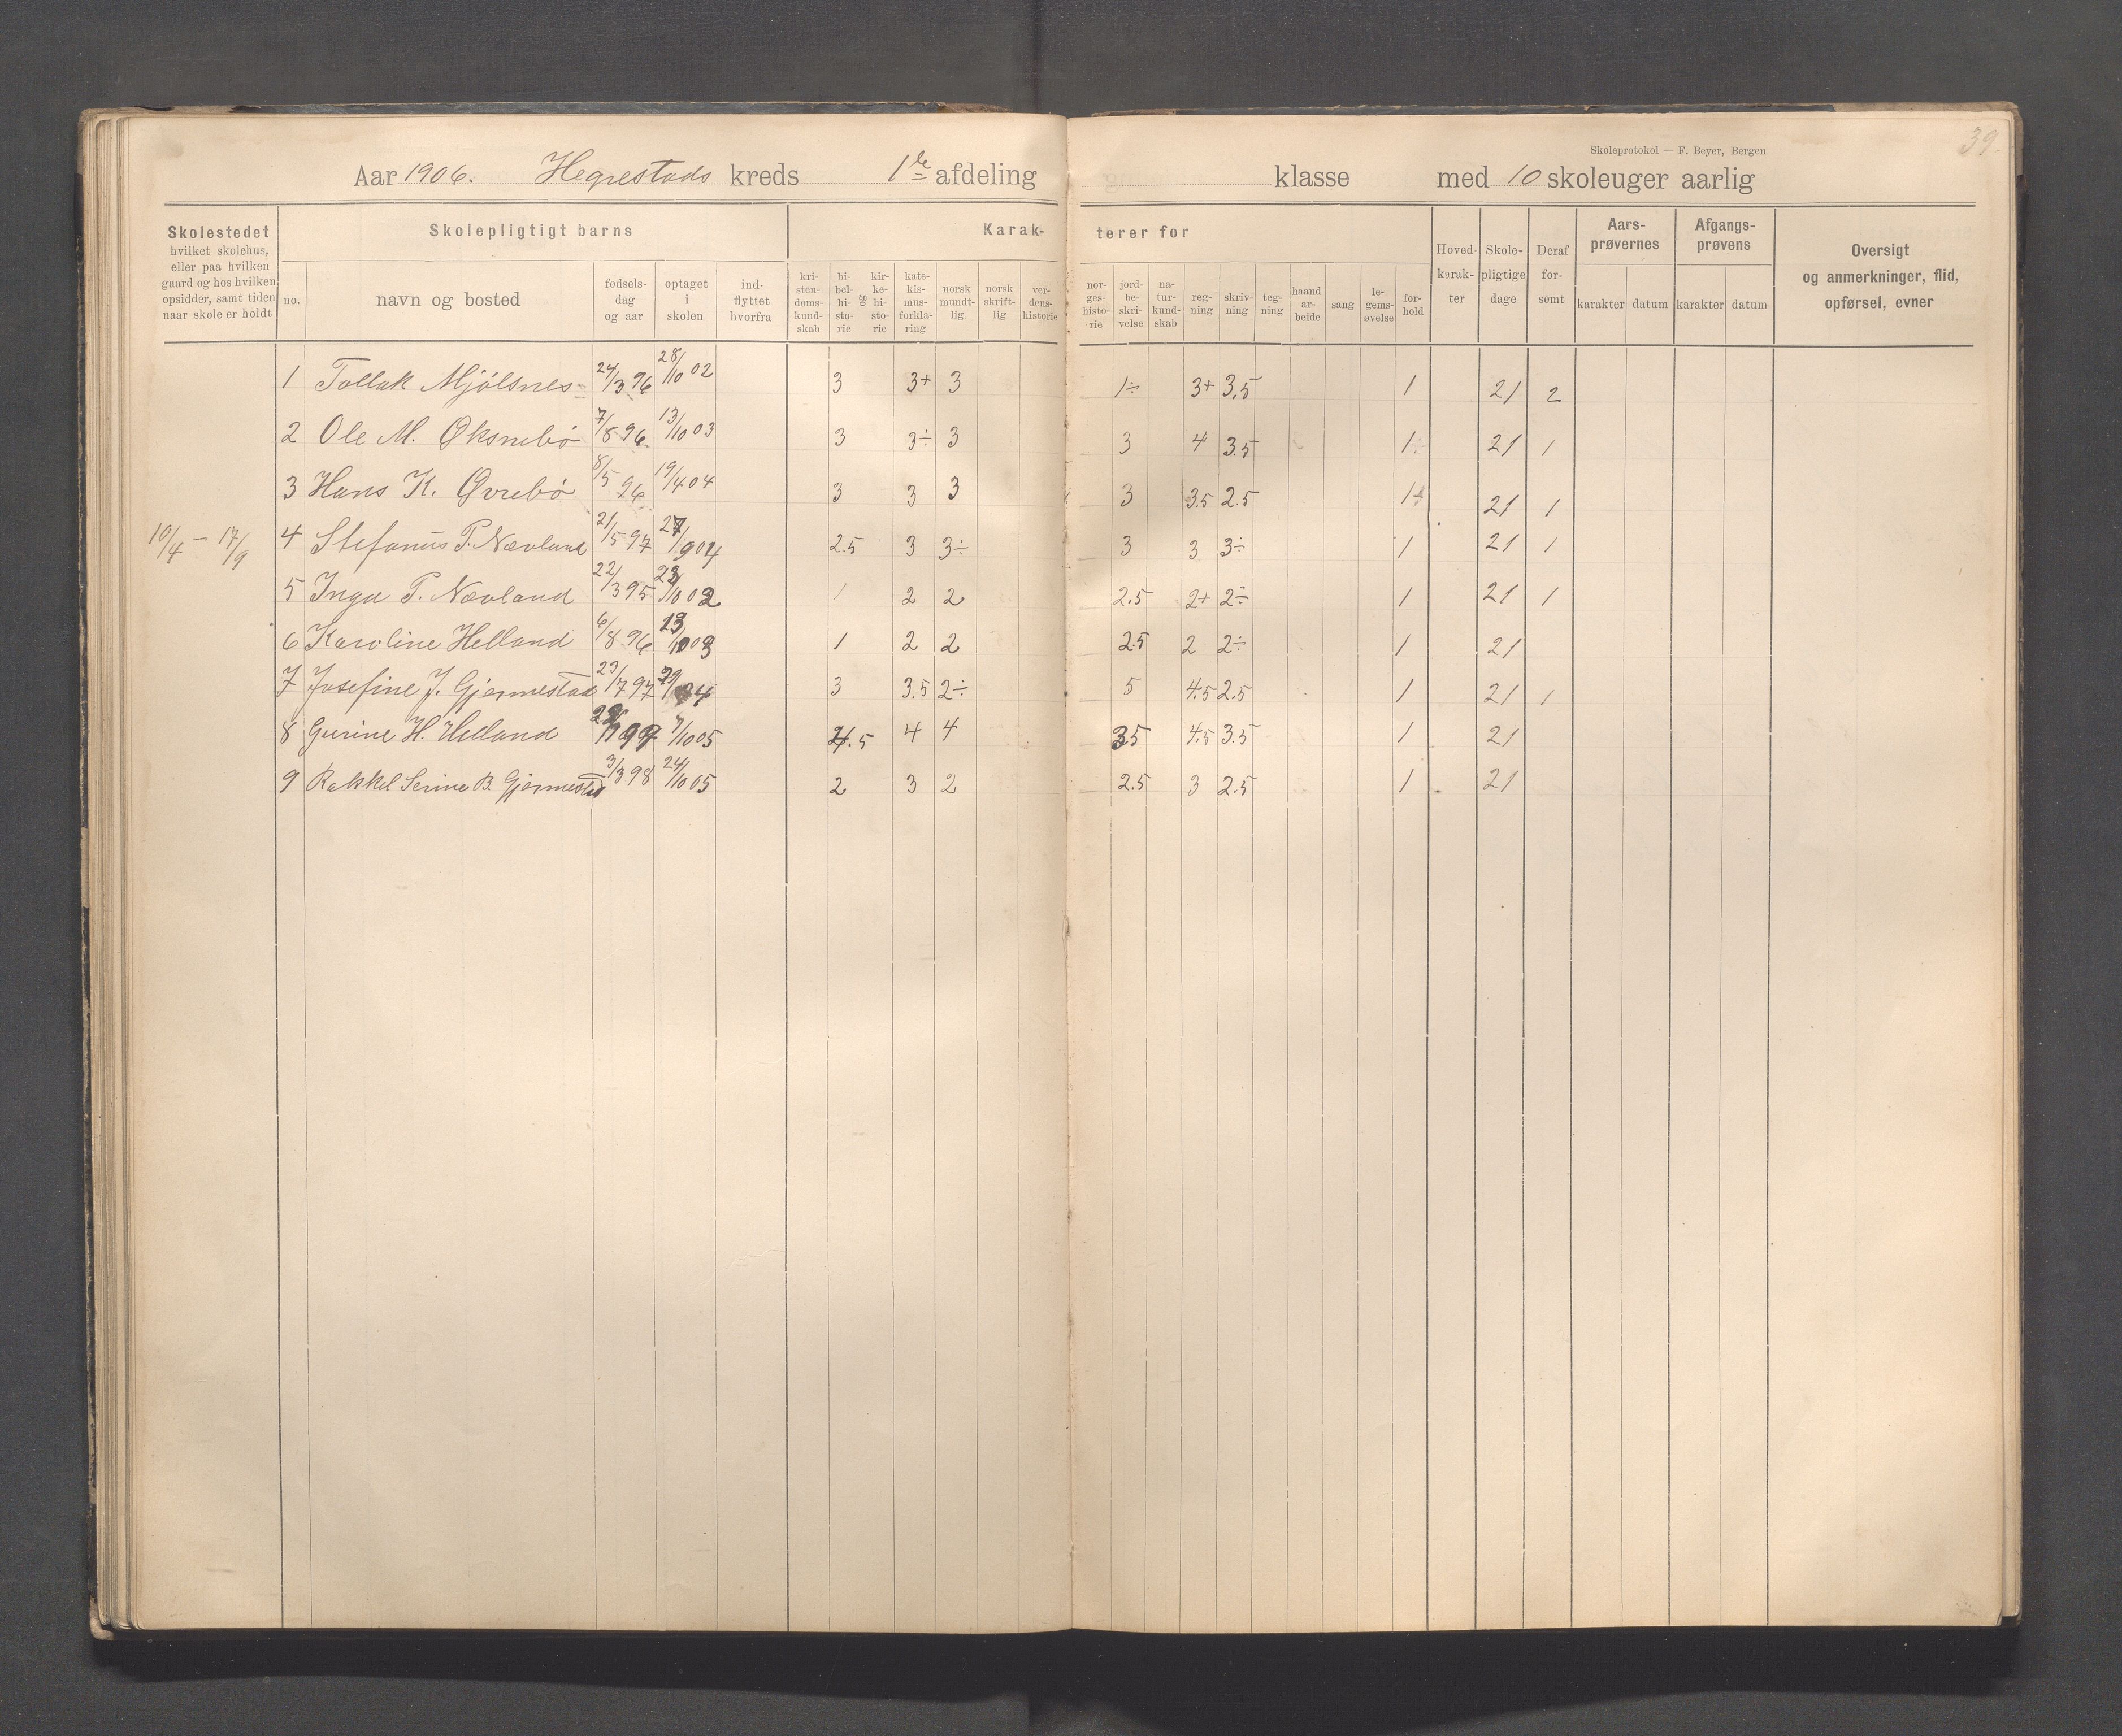 39.
Skoleprotokol — F. Beyer, Bergen
Aar 1906. Hegrestads kreds 1ste afdeling klasse med 10 skoleuger aarlig
Skolestedet
hvilket skolehus,
eller paa hvilken
gaard og hos hvilken
opsidder, samt tiden
naar skole er holdt
Skolepligtigt barns
no.
navn og bosted
fødsels-
dag
og aar
optaget
i
skolen
ind-
flyttet
hvorfra
Karak-
terer for
kri-
sten-
doms-
kund-
skab
bi-
bel-
hi-
sto-
rie
og
kir-
ke-
hi-
sto-
rie
kate-
kis-
mus-
forkla-
ring
norsk
mundt-
lig
norsk
skrift-
lig
ver-
dens-
historie
nor-
ges-
histo-
rie
jord-
be-
skri-
velse
na-
tur-
kund-
skab
reg-
ning
skriv-
ning
teg-
ning
haand
ar-
beide
sang
le-
gems-
øvelse
for-
hold
Hoved-
karak-
ter
Skole-
pligtige
dage
Deraf
for-
sømt
Aars-
prøvernes
karakter datum
Afgangs-
prøvens
karakter datum
Oversigt
og anmerkninger, flid,
opførsel, evner
1 Tollak Mjölsnes 24/3 96 28/10 02 3 3+ 3 1÷ 3+ 3,5 1 21 2
2 Ole M. Øksnebø 7/8 96 13/10 03 3 3÷ 3 3 4 3.5 1 21 1
3 Hans K. Øvrebø 8/5 96 19/4 04 3 3 3 3 3.5 2.5 1 21 1
10/4 — 17/9 4 Stefanus P. Nævland 21/5 97 27/9 04 2.5 3 3÷ 3 3 3÷ 1 21 1
5 Inga P. Nævland 22/3 95 28/10 02 1 2 2 2.5 2+ 2÷ 1 21 1
6 Karoline Helland 6/8 96 13/10 03 1 2 2 2.5 2 2÷ 1 21
7 Josefine J. Gjermestad 23/7 97 04 3 3.5 2÷ 5 4.5 2.5 1 21 1
8 Gurine H. Helland 7/10 05 4 4 3.5 4.5 3.5 1 21
9 Rakkel Serine B. Gjermestad 3/3 98 24/10 05 2 3 2 2.5 3 2.5 1 21